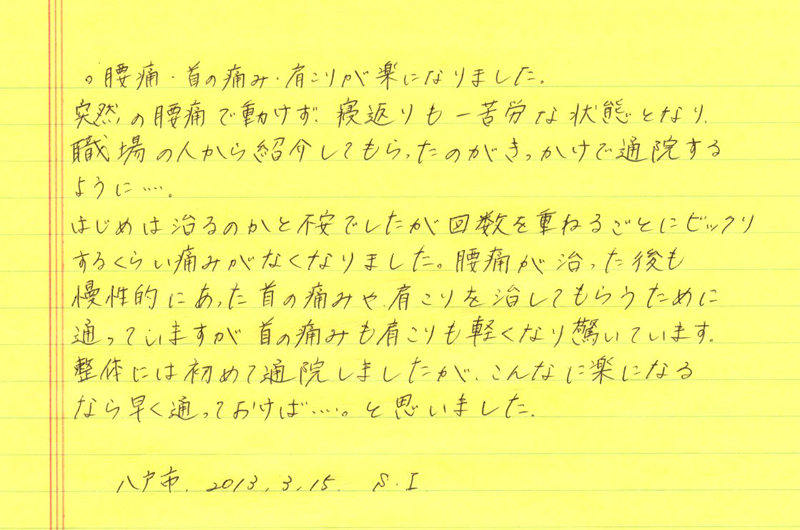 。腰痛・首の痛み・肩こりが楽になりました.
突然の腰痛で動けず、寝返りも一苦労な状態となり、
職場の人から紹介してもらったのがきっかけで通院する
ように….
はじめは治るのかと不安でしたが回数を重ねるごとにビックリ
するくらい痛みがなくなりました。腰痛が治った後も
慢性的にあった首の痛みや、肩こりを治してもらうために
通っていますが首の痛みも肩こりも軽くなり驚いています.
整体には初めて通院しましたが、こんなに楽になる
なら早く通っておけば…。と思いました.
八戸市. 2013.3.15. S.I